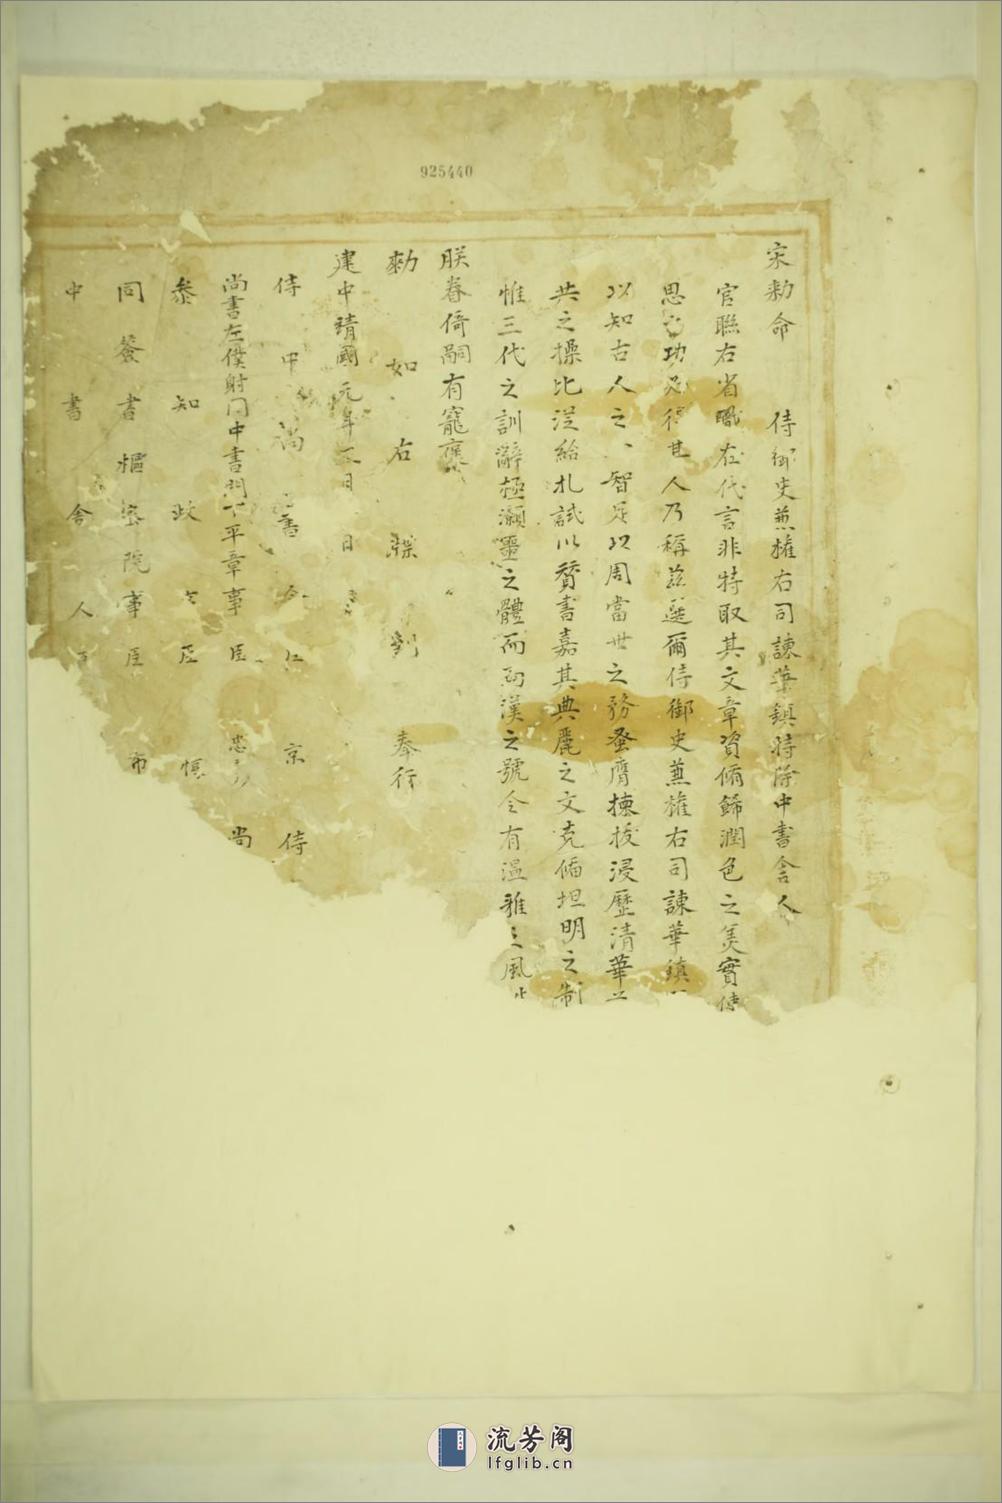 925440
宋勅命 侍御史兼權右司諫葉鎮特除中書舍人
官聯右省職在代言非特取其文章資脩飾潤色之美實傳
思之功必得其人乃稱茲選爾侍御史兼權右司諫華鎮
以知古人之智足以周當世之務蚤膺揀拔浸歷清華
共之操比從給札試以贊書嘉其典麗之文克循坦明之制
惟三代之訓辭極灝噩之體而兩漢之號令有溫雅之風
朕眷倚嗣有寵褒
勅如右牒到奉行
建中靖國元年 月 日
侍中尚書令 京 侍
尚書左僕射門中書門下平章事臣 忠 尚
叅知政 臣
同簽書樞密院事臣 布
中書舍人
流芳阁
lfglib.cn